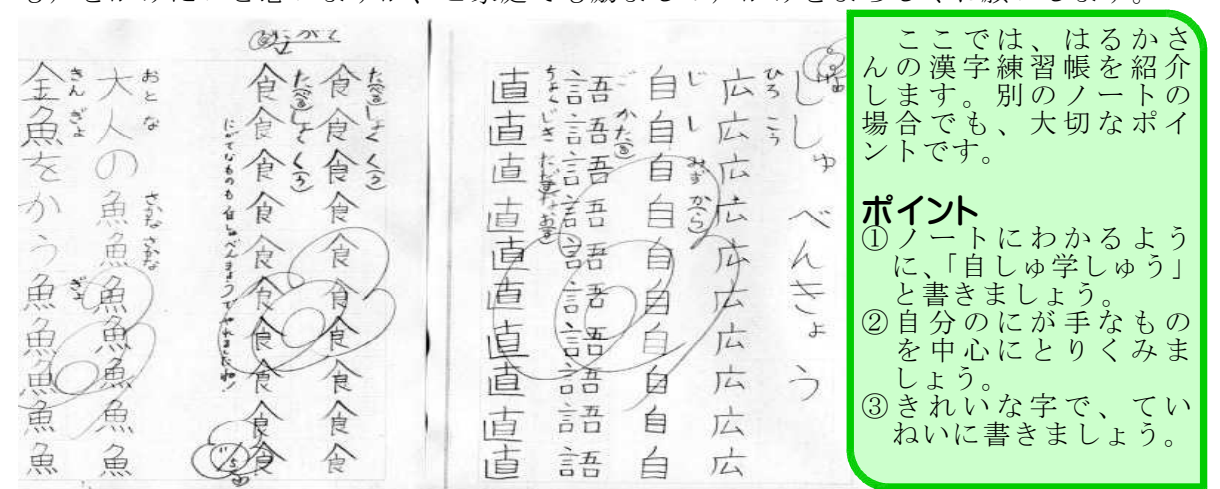 と思いますが、ご家庭でも励ましの
をよろしくお願いします。
じしゅべんきょう
ひろ こう
広広広広広広広広広広
じ し みずから
自自自自自自自自自自
ご かたる
語語語語語語語語語語
ちょく じき
直直直直直直直直直直
にがて
しょく くう
食食食食食食食食食食
しょく くう
食食食食食食食食食食
にがてなものも自しゅべんきょうでやれましたね!
おとな さかな さかな
大人の魚魚魚魚魚魚魚
きん ぎょ ぎょ
金魚をかう魚魚魚魚魚
ここでは、はるかさ
んの漢字練習帳を紹介
します。別のノートの
場合でも、大切なポイ
ントです。
ポイント
①ノートにわかるよう
に、「自しゅ学しゅう」
と書きましょう。
②自分のにが手なもの
を中心にとりくみま
しょう。
③きれいな字で、てい
ねいに書きましょう。